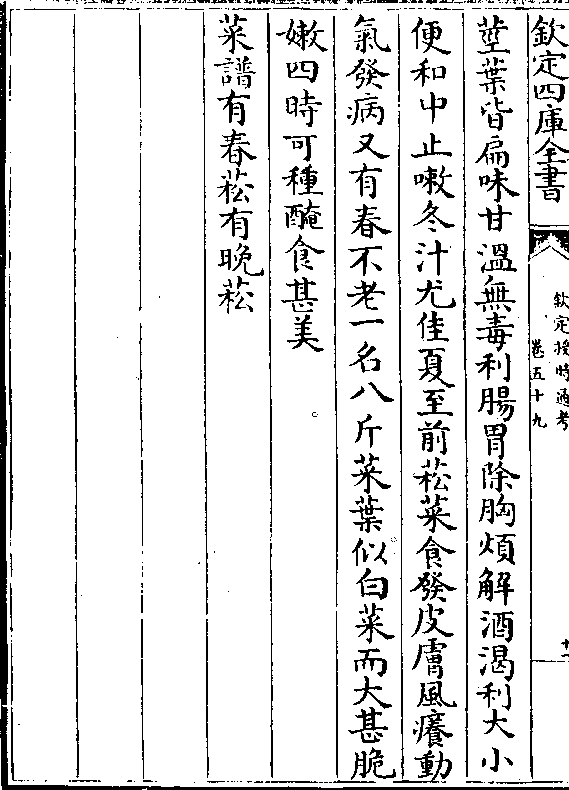 欽定四庫全書
欽定授時通考
卷五十九
十一
莖葉皆扁味甘溫無毒利腸胃除胸煩解酒渴利大小
便和中止嗽冬汁尤佳夏至前菘菜食發皮膚風癢動
氣發病又有春不老一名八斤菜葉似白菜而大甚脆
嫩四時可種醃食甚美
菜譜有春菘有晚菘